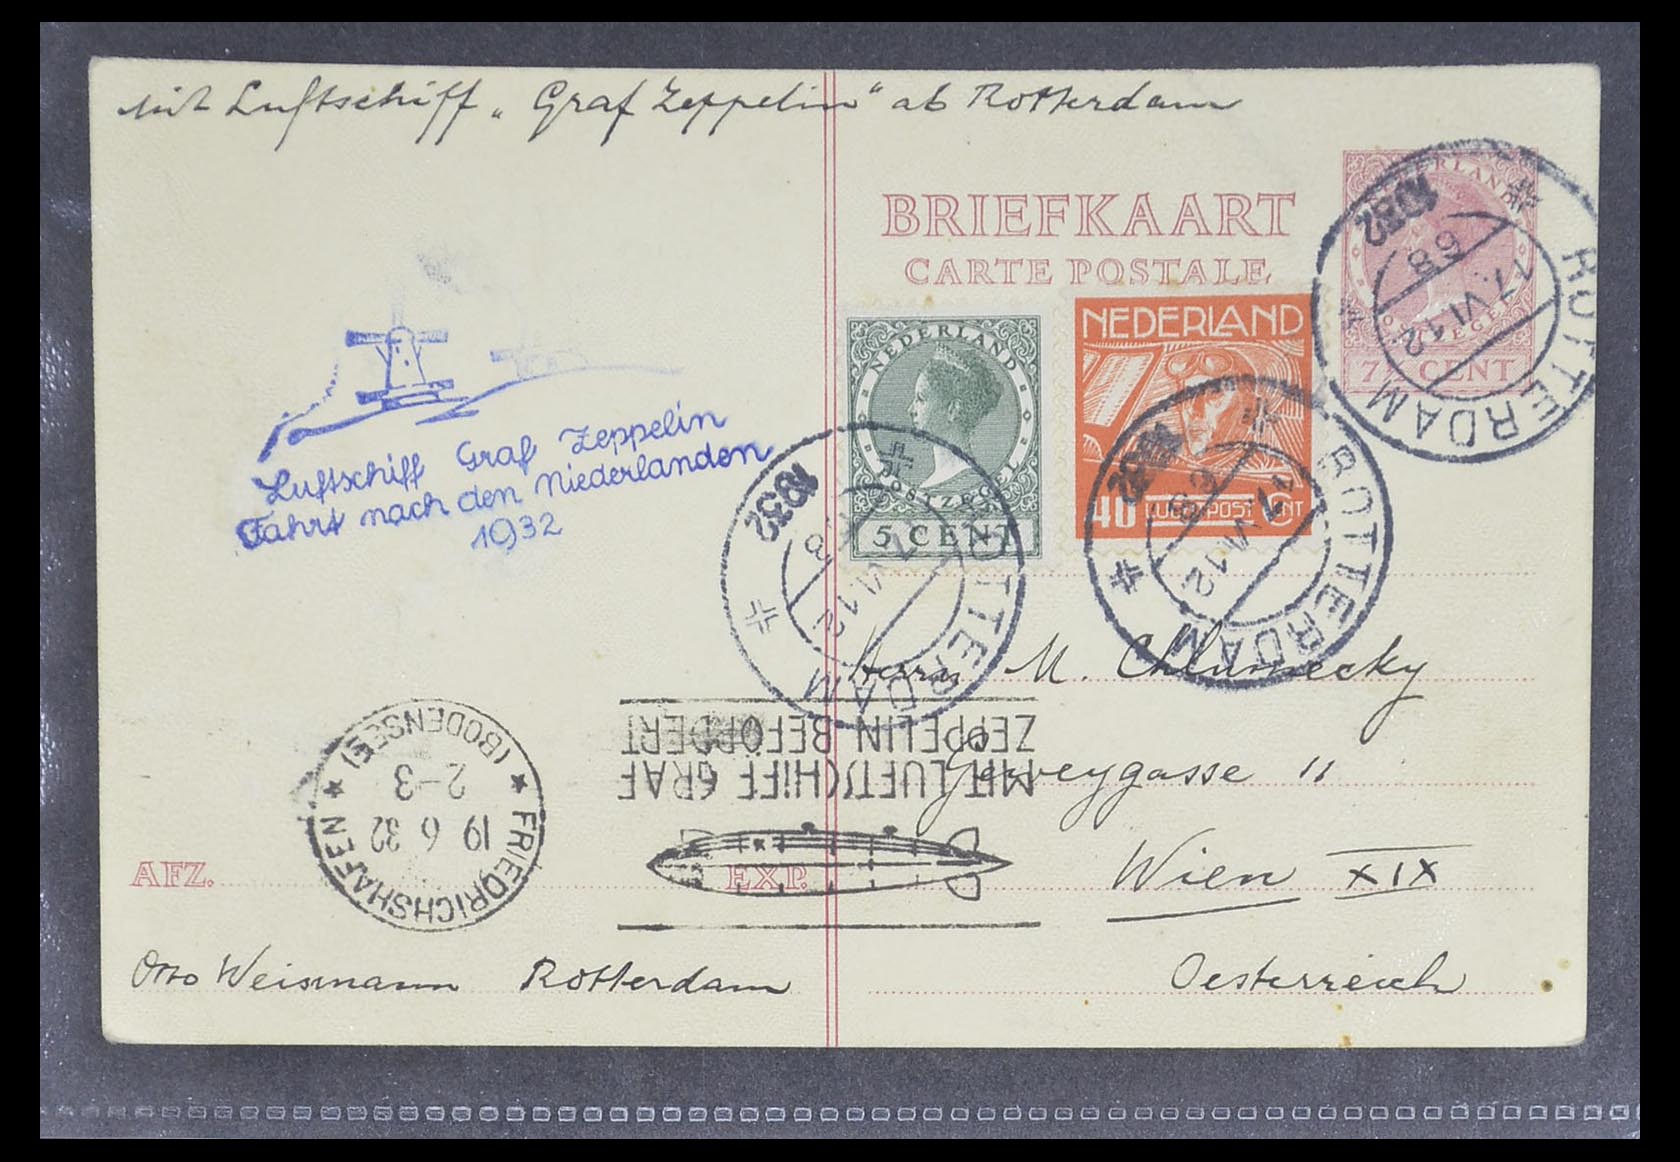 mit Luftschiff „Graf Zeppelin" ab Rotterdam
BRIEFKAART
CARTE POSTALE
NEDERLAND
7½ CENT
ROTTERDAM
17.VI 12
1932
68
NEDERLAND
POSTZEGEL
5 CENT
NEDERLAND
40 LUCHTPOST CNT
ROTTERDAM
17.VI 12
1932
ROTTERDAM
VI 12
1932
Luftschiff Graf Zeppelin
Fahrt nach den Niederlanden
1932
Herrn M. Chlumecky
gasse 11
Wien XIX
Oesterreich
MIT LUFTSCHIFF GRAF
ZEPPELIN BEFÖRDERT
FRIEDRICHSHAFEN
(BODENSEE)
19 6 32
2-3
AFZ.
EXP.
Otto Weismann Rotterdam